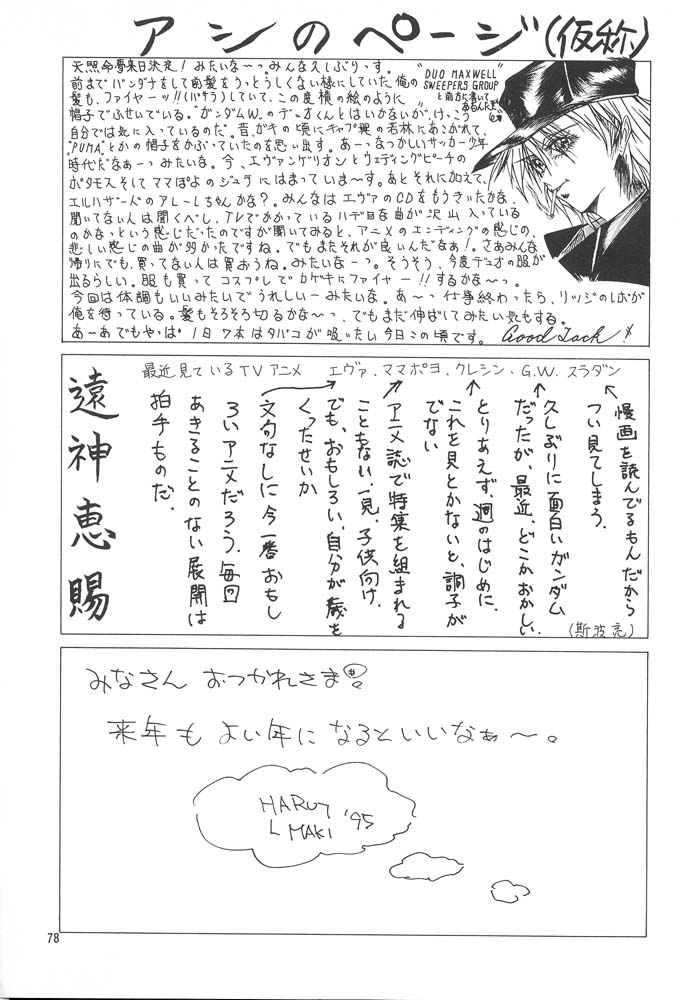 アシのページ(仮称)
天照命夢来日決定！みたいな〜っ。みんなえしぶりっす。
前までバンダナをして前髪をうっとうしくない様にしていた俺の
髪も、ファイヤーッ!!(バサラ)していて、この度横の絵のように
帽子でふせいでいる。"ガンダムW"のデュオくんとはいかないが、けっこう
自分では気に入っているのだ。昔、ガキの頃にキャプ翼の若林にあこがれて、
"PUMA"とかの帽子をかぶっていたのを思い出す。あーなつかしいサッカー少年
時代だなぁーっみたいな。今、エヴァンゲリオンとウェディングピーチの
ポタモスそしてママぽよのジュテにはまっていま〜す。あとそれに加えて、
エルハザードのアレーレちゃんかな？。みんなはエヴァのCDをもうきいたかな、
聞いてない人は聞くべし、TVでかかっているハデ目な曲が沢山入っている
のかなっという感じだったのですが聞いてみると、アニメのエンディングの感じの、
悲しい感じの曲が多かったですね。でもまたそれが良いんだなぁ！。さあみんな
帰りにでも、買ってない人は買おうね。みたいなーっ。そうそう、今度デュオの服が
出るらしい。服も買って コスプレで カゲキにファイヤー!!するかな〜っ。
今回は体調もいいみたいでうれしいーみたいな。あ〜っ仕事終わったら、リッジのレボが
俺を待っている。髪もそろそろ切るかな〜っ、でもまだ伸ばしてみたい気もする。
あーあでもやっぱ 1日7本はタバコが吸いたい今日この頃です。Good Luck!
"DUO MAXWELL"
SWEEPERS GROUP
と前方に書いて
あるんだぜ
遠神恵賜
最近見ているTVアニメ エヴァ．ママポヨ、クレシン・G.W. スラダン
漫画を読んでるもんだから
つい見てしまう．
久しぶりに面白いガンダム
だったが、最近、どこかおかしい
とりあえず、週のはじめに．
これを見とかないと、調子が
でない
アニメ誌で特集を組まれる
こともない、一見、子供向け．
でも、おもしろい、自分が歳を
くったせいか
文句なしに今一番おもし
ろいアニメだろう．毎回
あきることのない展開は
拍手ものだ．
(斯波亮)
みなさん おつかれさま
来年も よい年に なるといいなぁ〜。
HARU7
L MAKI '95
78